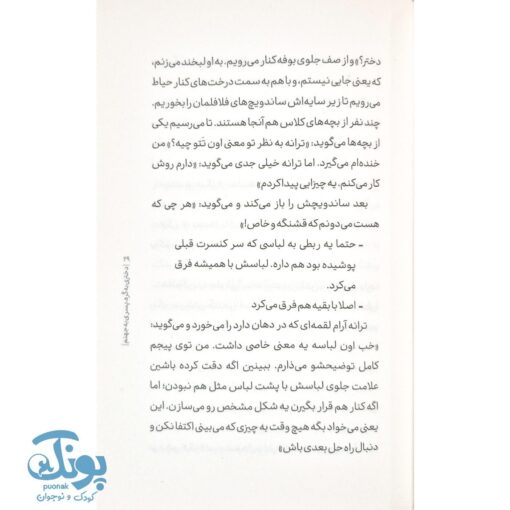 دختر؟» و از صف جلوی بوفه کنار می‌رویم. به او لبخند می‌زنم،
که یعنی جایی نیستم، و با هم به سمت درخت‌های کنار حیاط
می‌رویم تا زیر سایه‌اش ساندویچ‌های فلافلمان را بخوریم.
چند نفر از بچه‌های کلاس هم آنجا هستند. تا می‌رسیم یکی
از بچه‌ها می‌گوید: «ترانه به نظر تو معنی اون تَتو چیه؟» من
خنده‌ام می‌گیرد. اما ترانه خیلی جدی می‌گوید: «دارم روش
کار می‌کنم. یه چیزایی پیدا کردم»
بعد ساندویچش را باز می‌کند و می‌گوید: «هر چی که
هست می‌دونم که قشنگه و خاص!»
- حتما یه ربطی به لباسی که سر کنسرت قبلی
پوشیده بود هم داره. لباسش با همیشه فرق
می‌کرد.
- اصلا با بقیه هم فرق می‌کرد
ترانه آرام لقمه‌ای که در دهان دارد را می‌خورد و می‌گوید:
«خب اون لباسه یه معنی خاصی داشت. من توی پیجم
کامل توضیحشو می‌ذارم. ببینین اگه دقت کرده باشین
علامت جلوی لباسش با پشت لباس مثل هم نبودن؛ اما
اگه کنار هم قرار بگیرن یه شکل مشخص رو می‌سازن. این
یعنی می‌خواد بگه هیچ وقت به چیزی که می‌بینی اکتفا نکن و
دنبال راه حل بعدی باش»
دختری به گرد پسری به جهنم
پونک
puonak
کودک و نوجوان